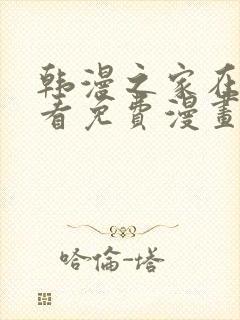 韩漫之家在
看免费漫畫
哈倫-塔